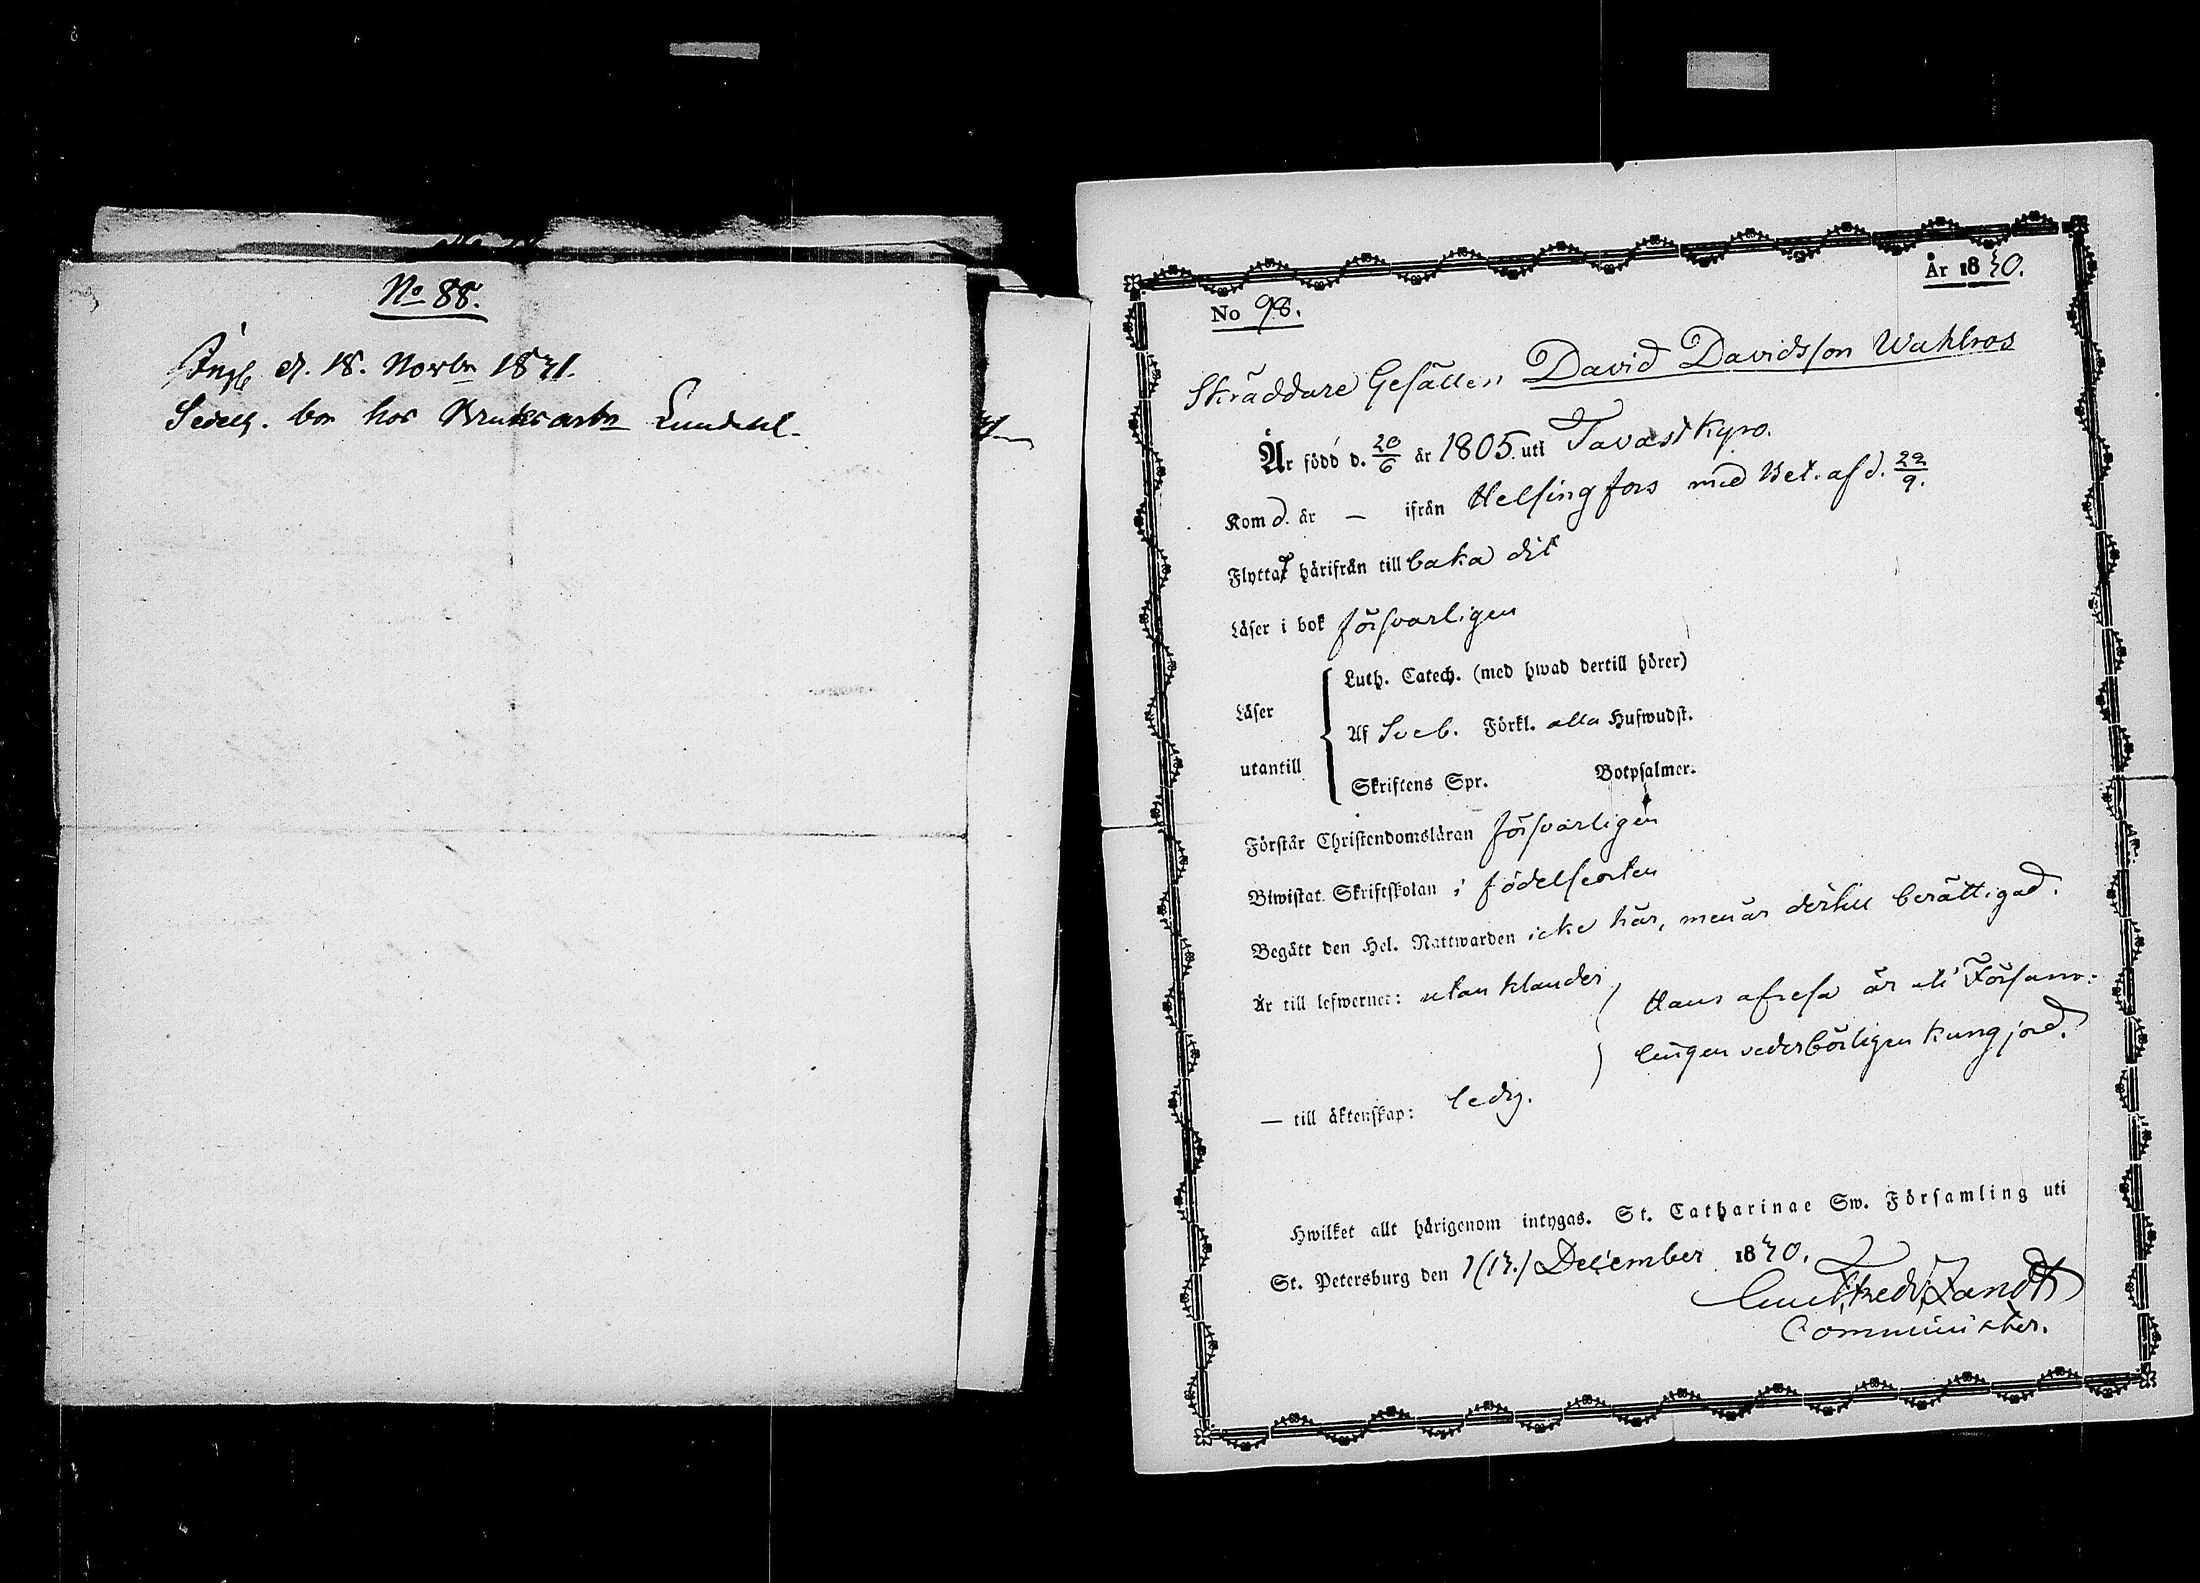 No 88.
d. 18. Novbr 1841.
bor hos Bruksarb. Lundahl.
År 1840.
No 98.
Skräddare Gesällen David Davidsson Wahlros
Är född d. 20/6 år 1805. uti Tavastkyro.
Kom d. år — ifrån Helsingfors med Bet. af d. 22/9.
Flyttat härifrån tillbaka dit
Läser i bok försvarligen
Luth. Catech. (med hwad dertill hörer)
Läser
Af Sveb. Förkl. alla Hufwudst.
utantill
Skriftens Spr. Botpsalmer.
Förstår Christendomsläran försvarligen
Biwistat Skriftskolan i födelseorten
Begått den Hel. Nattwarden icke här, men är dertill berättigad.
Är till lefwernet: utan klander,
Hans afresa är uti Försam-
lingen vederbörligen kungjord.
— till äktenskap: ledig.
Hwilket allt härigenom intygas. St. Catharinae Sw. Församling uti
St. Petersburg den 1(13.) December 1840.
Zandt
Comminister.